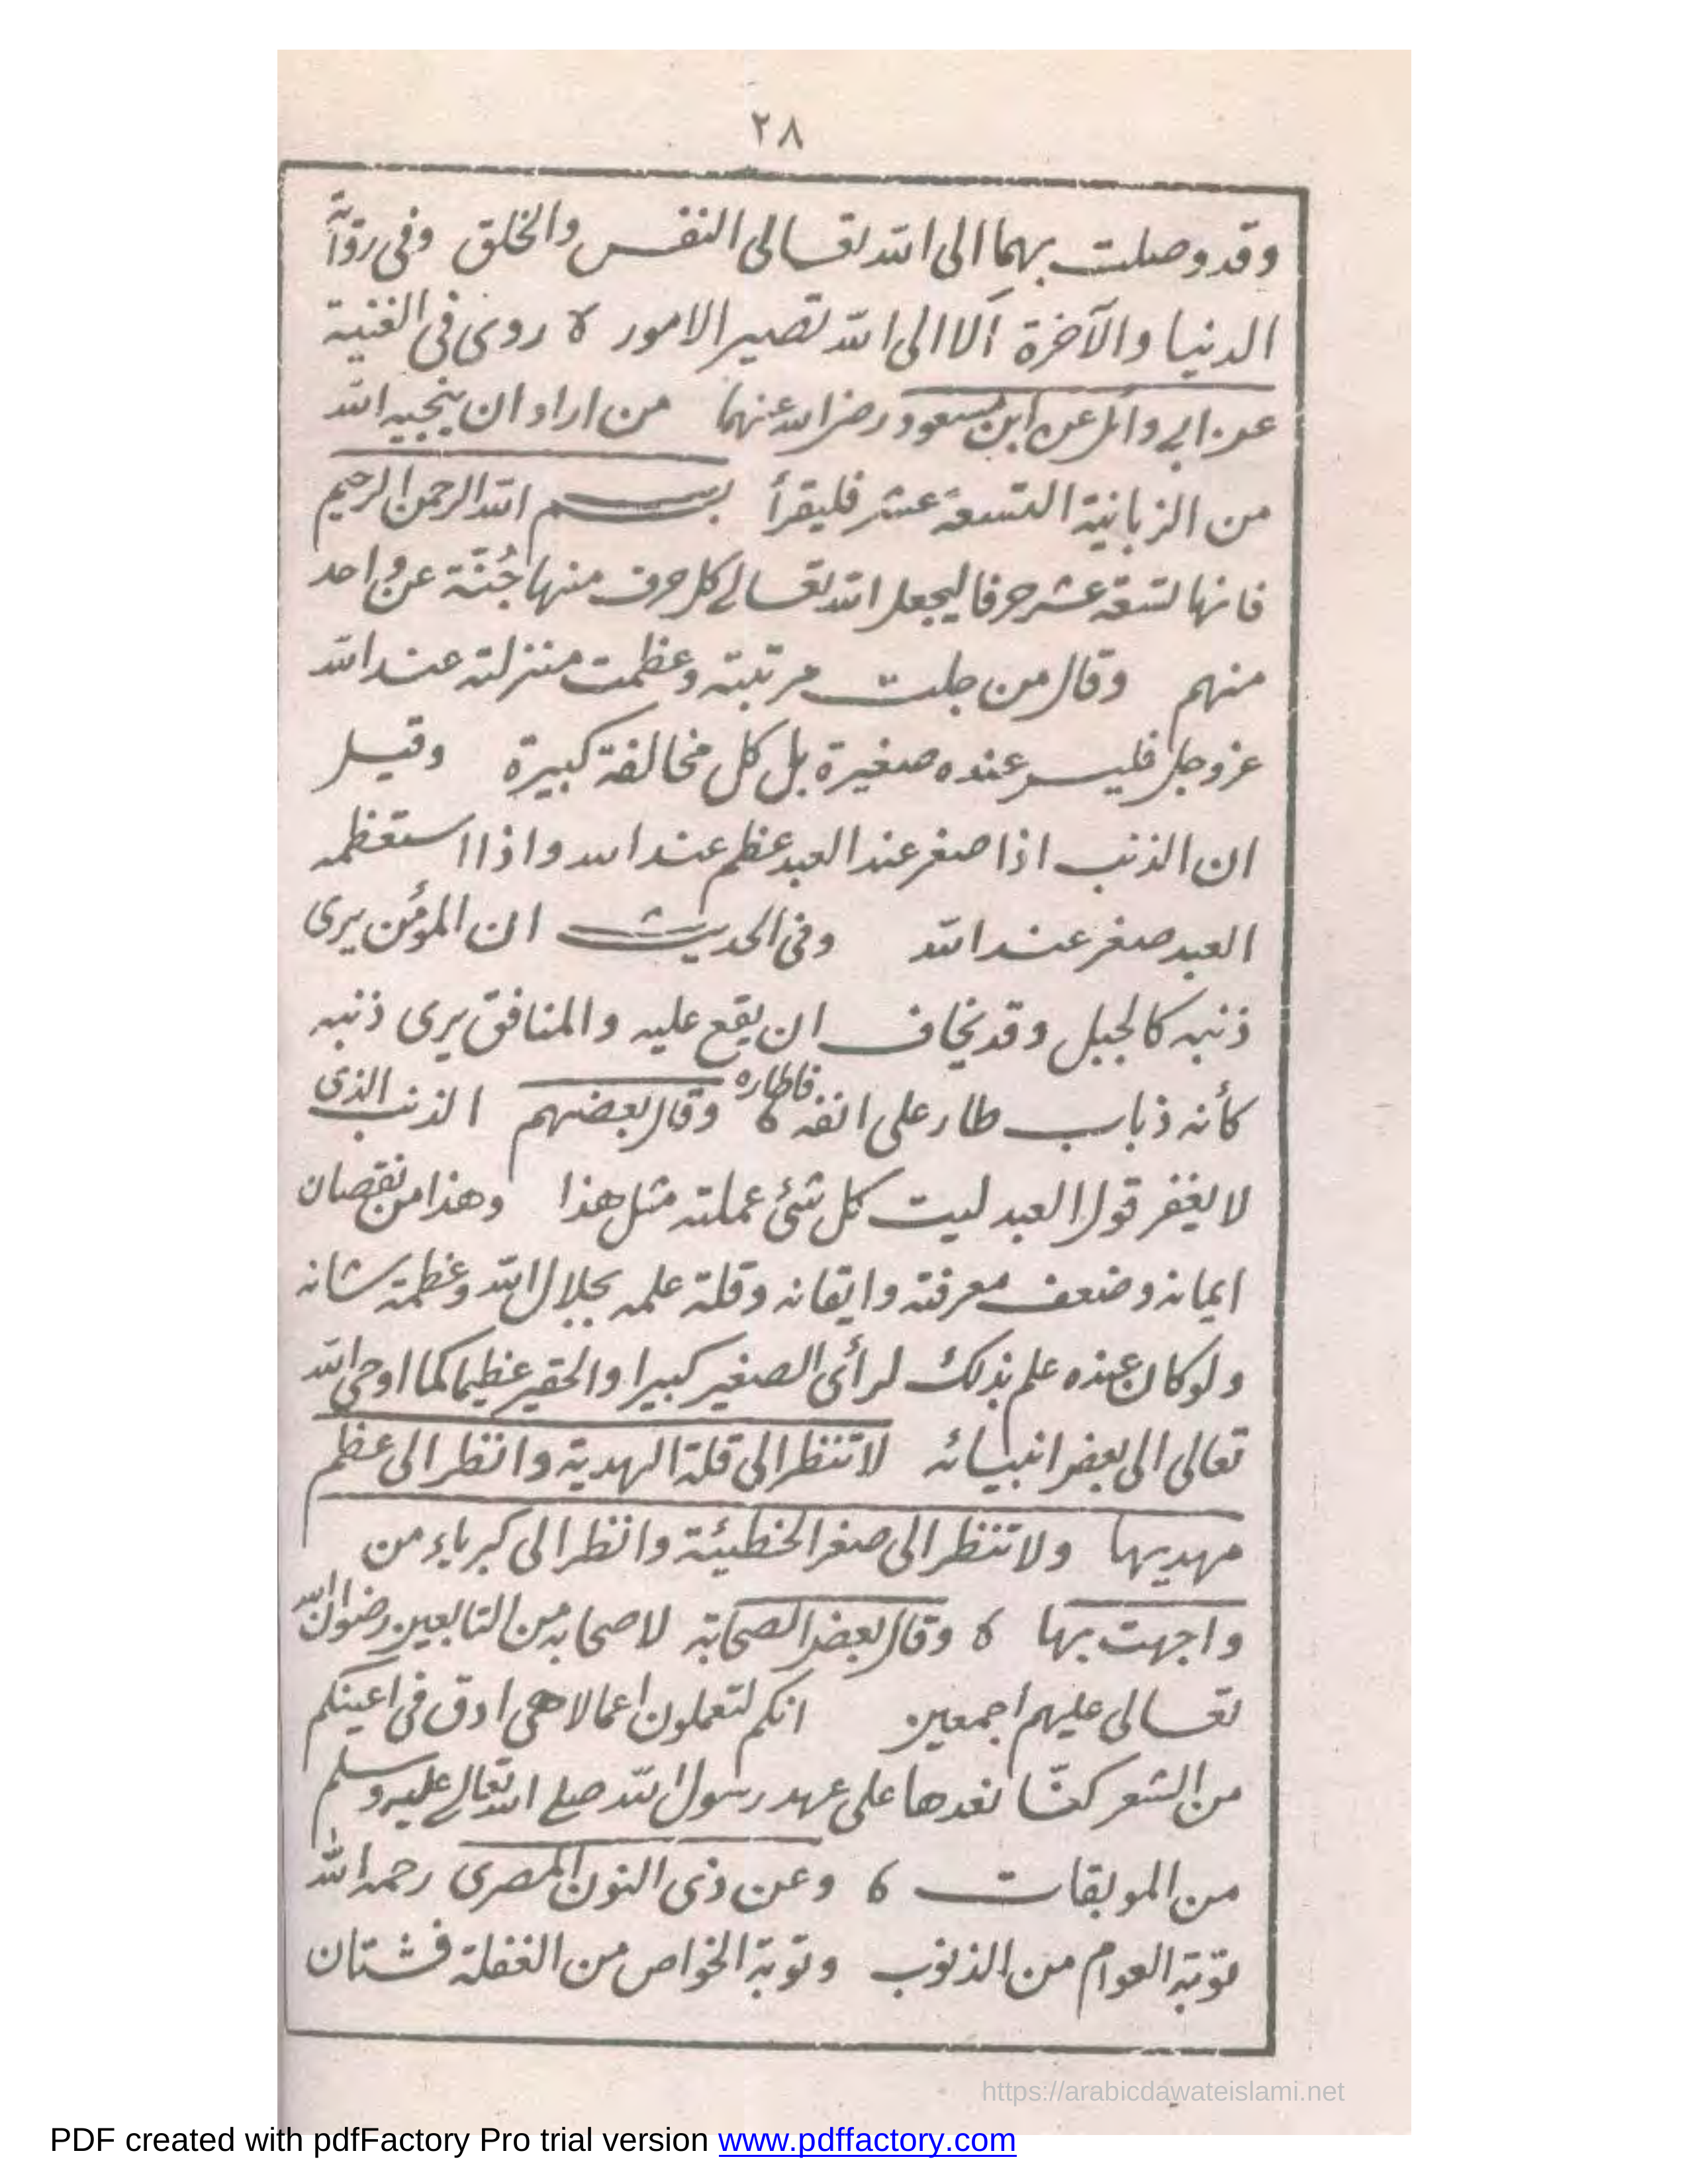 ٢٨
وقد وصلت بهما الى الله تعالى النفس والخلق وفى رواية
الدنيا والآخرة ألا الى الله تصير الامور ه روى فى الغنية
عن ابي وائل عن ابن مسعود رضى الله عنهما من اراد ان ينجيه الله
من الزبانية التسعة عشر فليقرأ بسم الله الرحمن الرحيم
فانها تسعة عشر حرفا ليجعل الله تعالى كل حرف منها جُنّة عن واحد
منهم وقال من جلت مرتبته وعظمت منزلته عند الله
عز وجل فليس عنده صغيرة بل كل مخالفة كبيرة وقيل
ان الذنب اذا صغر عند العبد عظم عند الله واذا استعظمه
العبد صغر عند الله وفى الحديث ان المؤمن يرى
ذنبه كالجبل وقد يخاف ان يقع عليه والمنافق يرى ذنبه
كأنه ذباب طار على انفه فاطاره ه وقال بعضهم الذنب الذى
لا يغفر قول العبد ليت كل شئ عملته مثل هذا وهذا من نقصان
ايمانه وضعف معرفته وايقانه وقلة علمه بجلال الله وعظمة شانه
ولو كان عنده علم بذلك لرأى الصغير كبيرا والحقير عظيما كما اوحى الله
تعالى الى بعض انبيائه لا تنظر الى قلة الهدية وانظر الى عظم
مهديها ولا تنظر الى صغر الخطيئة وانظر الى كبرياء من
واجهت بها ه وقال بعض الصحابة لاصحابه من التابعين رضوان الله
تعالى عليهم أجمعين انكم لتعملون اعمالا هى ادق فى اعينكم
من الشعر كنّا نعدها على عهد رسول الله صلى الله تعالى عليه وسلم
من الموبقات ه وعن ذى النون المصرى رحمه الله
توبة العوام من الذنوب وتوبة الخواص من الغفلة فشتان
https://arabicdawateislami.net
PDF created with pdfFactory Pro trial version www.pdffactory.com